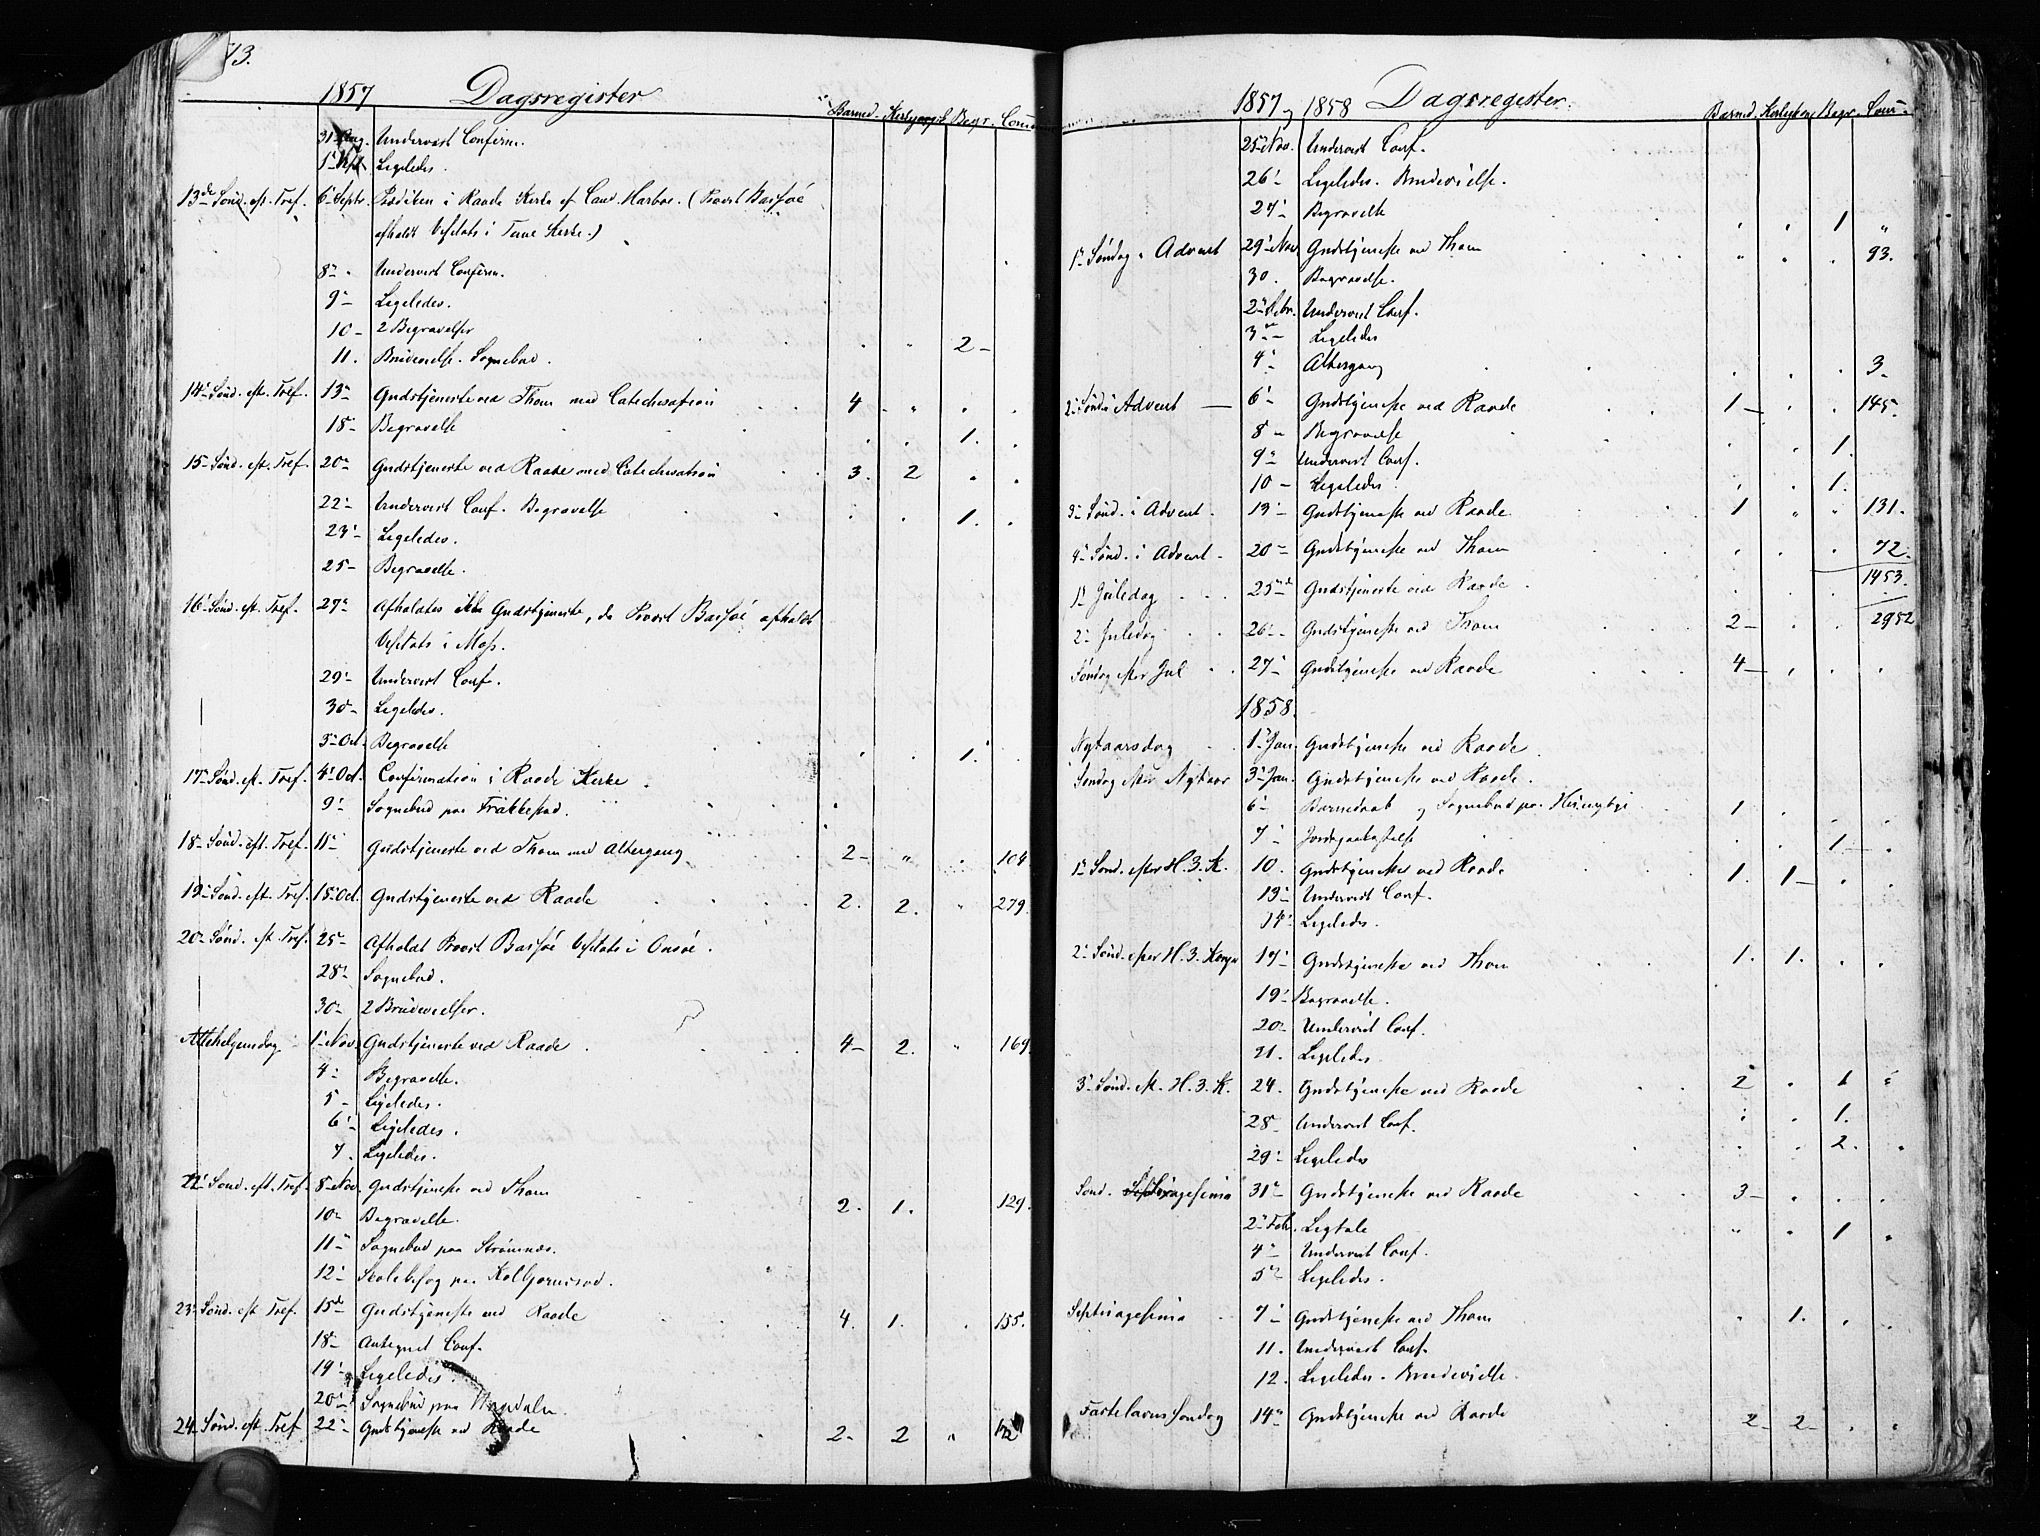 13.
1857 Dagsregister Barned. Kirkegangsk. Begr. Comm.
31 Aug. Undervist Confirm.
1 Sept. Ligeledes.
13de Sönd. eft. Tref. 6 Septr. Prædiken i Raade Kirke af Cand. Harboe. (Provst Bassøe
afholdt Visitats i Tune Kirke.)
8 - Undervist Confirm.
9 - Ligeledes.
10 - 2 Begravelser 2 -
11. Brudevielse. Sognebud.
14 Sönd. eft. Tref. 13 - Gudstjeneste ved Thom med Catechisation 4 - " . .
18 - Begravelse . . 1. .
15 Sönd. eft. Tref. 20 - Gudstjeneste ved Raade med Catechisation 3. 2 . .
22 - Undervist Conf. Begravelse . . 1. .
23 - Ligeledes.
25 - Begravelse.
16 Sönd. eft. Tref. 27 - Afholdtes ikke Gudstjeneste, da Provst Bassøe afholdt
Visitats i Moss.
29 - Undervist Conf.
30 - Ligeledes.
3 Oct. Begravelse . . 1.
17 Sönd. eft. Tref. 4 Oct. Confirmation i Raade Kirke
9 - Sognebud paa Frakkestad.
18 - Sönd. eft. Tref. 11 - Gudstjeneste ved Thom med Altergang 2 - " . 104
19 Sönd. eft. Tref. 18 Oct. Gudstjeneste ved Raade 2. 2. " 279.
20 Sönd. eft. Tref. 25 - Afholdt Provst Bassøe Visitats i Onsøe.
28 - Sognebud.
30 - 2 Brudevielser.
Allehelgensdag 1 Nov. Gudstjeneste ved Raade. 4 - 2. " 169.
4 - Begravelse.
5 - Ligeledes.
6 - Ligeledes.
7. Ligeledes.
22 Sönd. eft. Tref. 8 Nov. Gudstjeneste ved Thom 2. 1. 129.
10 - Begravelse.
11 - Sognebud paa Strömnæs.
12 - Skolebesøg paa Kolbjørnsrød.
23 Sönd. eft. Tref. 15 - Gudstjeneste ved Raade 4. 1. . 155.
18 - Antegnet Conf.
19 - Ligeledes.
20 - Sognebud paa
24 Sönd. eft. Tref 22 - Gudstjeneste ved Raade 2 - 2 "
1857 og 1858 Dagsregister. Barned. Kirkegang Begr. Comm.
25 Nov. Undervist Conf.
26 - Ligeledes. Brudevielse.
27 - Begravelse . . 1 "
1 Søndag i Advent 29 Nov. Gudstjeneste ved Thom " . . 93.
30. Begravelse.
2 Debr. Undervist Conf.
3 - Ligeledes
4 - Altergang . . . 3 -
2 Sönd. i Advent 6 - Gudstjeneste ved Raade 1 - . . 145.
8 - Begravelse . . 1.
9 - Undervist Conf.
10 - Ligeledes . . 1.
3 Sönd. i Advent. 13 - Gudstjeneste ved Raade 1 " " 131.
4 Sönd. i Advent. 20 - Gudstjeneste ved Thom . . . 72.
1453.
1 Juledag 25 - Gudstjeneste ved Raade . . .
2 Juledag 26 - Gudstjeneste ved Thom 2 - . . 2952
Søndag efter Jul 27 - Gudstjeneste ved Raade 4 - . . .
1858.
Nytaarsdag 1 Jan. Gudstjeneste ved Raade.
Søndag efter Nytaar 3 Jan. Gudstjeneste ved Raade.
6 - Barnedaab og Sognebud paa 1 . . .
7 - Jordpaakastelse . . 1 - .
1 Sönd. efter H. 3. K. 10. Gudstjeneste ved Raade 1. 1 - . .
13 - Undervist Conf.
14 - Ligeledes.
2 Sönd. efter H. 3. Konger 17 - Gudstjeneste ved Thom 1. 1. . .
19 - Begravelse.
20 - Undervist Conf.
21. Ligeledes.
3 Sönd. eft. H. 3. K. 24. Gudstjeneste ved Raade 2 . 1 .
28 - Undervist Conf. . . 1.
29 - Ligeledes . . 2. .
Sönd. Septuagesima 31 - Gudstjeneste ved Raade 3 - . . .
2 Feb. Ligtale " . 1 .
4 - Undervist Conf.
5 - Ligeledes.
Septuagesima 7 - Gudstjeneste ved Thom . 1. . .
11. Undervist Conf.
12. Ligeledes - Brudevielse.
Fastelavns Søndag 14 - Gudstjeneste ved Raade 2 - 2 - . .